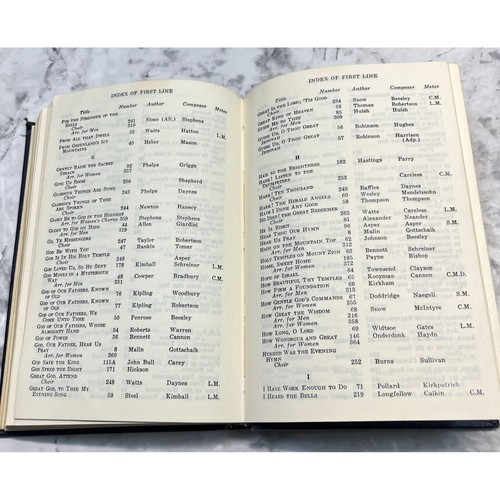 INDEX OF FIRST LINE
Title Number Author Composer Meter
FOR THE STRENGTH OF THE
HILLS 241 Sloan (Alt.) Stephens
Choir
Arr. for Men 310
FROM ALL THAT DWELL 32 Watts Hatton L.M.
FROM GREENLAND'S ICY
MOUNTAINS 45 Heber Mason
G
GENTLY RAISE THE SACRED
STRAIN 92 Phelps Griggs
Arr. for Women 357
GIVE US ROOM Shepherd
Choir
GLORIOUS THINGS ARE SUNG Phelps Daynes
Choir
GLORIOUS THINGS OF THEE
ARE SPOKEN 244 Newton Haney
Choir
GLORY BE TO GOD IN THE HIGHEST
Arr. for Women's Chorus 359 Stephens Stephens
GLORY TO GOD ON HIGH 44 Allen Giardini
Arr. for Men
GO, YE MESSENGERS 247 Taylor Robertson
GOD BE WITH YOU 47 Rankin Tomer
GOD IS IN HIS HOLY TEMPLE
Choir 246 Asper
GOD LOVED US, SO HE SENT 178 Kimball Schreiner L.M.
GOD MOVES IN A MYSTERIOUS
WAY 48 Cowper Bradbury C.M.
Arr. for Men 331
GOD OF OUR FATHERS, KNOWN
OF OLD Kipling Woodbury
Choir
GOD OF OUR FATHERS, KNOWN
OF OLD 76 Kipling Robertson
GOD OF OUR FATHERS, WE
COME UNTO THEE 50 Penrose Beesley
GOD OF OUR FATHERS, WHOSE
ALMIGHTY HAND 54 Roberts Warren
GOD OF POWER 36 Bennett Cannon
GOD, OUR FATHER, HEAR US
PRAY 8 Malin Gottschalk
Arr. for Women 360
GOD SAVE THE KING 115A John Bull Carey
GOD SPEED THE RIGHT 171 Hickson
GREAT GOD, ATTEND
Choir 248 Watts Daynes L.M.
GREAT GOD, TO THEE MY
EVENING SONG 59 Steel Kimball L.M.
INDEX OF FIRST LINE
Title Number Author Composer Meter
GREAT IS THE LORD; 'TIS GOOD Snow Beesley C.M.
GREAT KING OF HEAVEN 53 Thomas Robertson L.M.
GUIDE ME TO THEE Huish Huish
Arr. for Men
GUIDE US, O THOU GREAT
JEHOVAH 56 Robinson Hughes
GUIDE US, O THOU GREAT
JEHOVAH Robinson Harrison
(Adp.)
H
HAIL TO THE BRIGHTNESS
Choir Hastings Parry
HARK! LISTEN TO THE
TRUMPETERS Careless C.M.
Choir
HARK! TEN THOUSAND 249 Raffles Daynes
HARK! THE HERALD ANGELS Wesley Mendelssohn
HAVE I DONE ANY GOOD 58 Thompson Thompson
HE DIED! THE GREAT REDEEMER
Choir Watts Careless L.M.
HE IS RISEN 61 Alexander Neander
HEAR THOU OUR HYMN Asper Asper S.M.
HEAR US PRAY 8 Malin Gottschalk
HIGH ON THE MOUNTAIN TOP 62 Johnson Beesley
Arr. for Men 312
HOLY TEMPLES ON MOUNT ZION 63 Bennett Schreiner
HOME, SWEET HOME Payne Bishop
Choir 372
HOPE OF ISRAEL 64 Townsend Clayson
HOW BEAUTIFUL THY TEMPLES Kooyman Cannon C.M.D.
HOW FIRM A FOUNDATION Kirkham
Arr. for Men
HOW GENTLE GOD'S COMMANDS 67 Doddridge Naegeli S.M.
Arr. for Women 355
HOW GREAT THE WISDOM 68 Snow McIntyre C.M.
Arr. for Men
HOW LONG, O LORD Widtsoe Gates L.M.
HOW WONDROUS AND GREAT 146 Onderdonk Haydn
Arr. for Women 364
HUSHED WAS THE EVENING
HYMN
Choir 252 Burns Sullivan
I
I HAVE WORK ENOUGH TO DO 71 Pollard Kirkpatrick
I HEARD THE BELLS 219 Longfellow Calkin C.M.